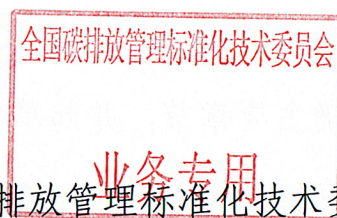 全国碳排放管理标准化技术委员会
业务专用
排放管理标准化技术委